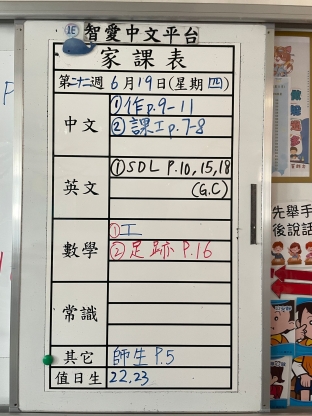 智愛中文平台
家課表
第二十二週 6月19日(星期四)
中文
①作p.9-11
②課工p.7-8
英文
①SDL P.10,15,18
(G.C)
數學
①工
②足跡 P.16
常識
其它
師生 P.5
值日生
22,23
先舉手
後說話